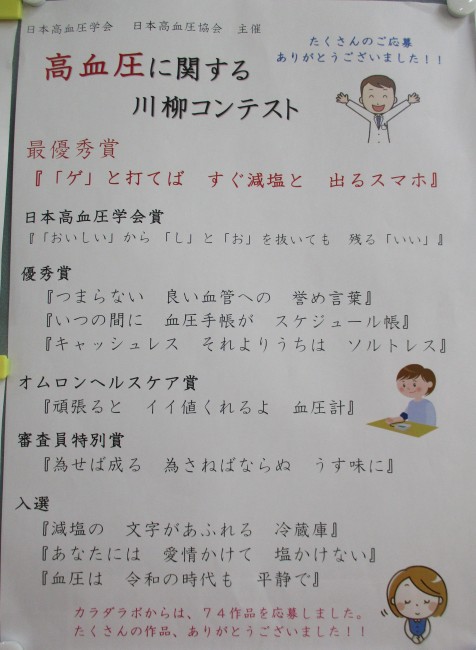 日本高血圧学会　日本高血圧協会　主催
たくさんのご応募
ありがとうございました！！
高血圧に関する
川柳コンテスト
最優秀賞
『「ゲ」と打てば　すぐ減塩と　出るスマホ』
日本高血圧学会賞
『「おいしい」から「し」と「お」を抜いても　残る「いい」』
優秀賞
『つまらない　良い血管への　誉め言葉』
『いつの間に　血圧手帳が　スケジュール帳』
『キャッシュレス　それよりうちは　ソルトレス』
オムロンヘルスケア賞
『頑張ると　イイ値くれるよ　血圧計』
審査員特別賞
『為せば成る　為さねばならぬ　うす味に』
入選
『減塩の　文字があふれる　冷蔵庫』
『あなたには　愛情かけて　塩かけない』
『血圧は　令和の時代も　平静で』
カラダラボからは、７４作品を応募しました。
たくさんの作品、ありがとうございました！！